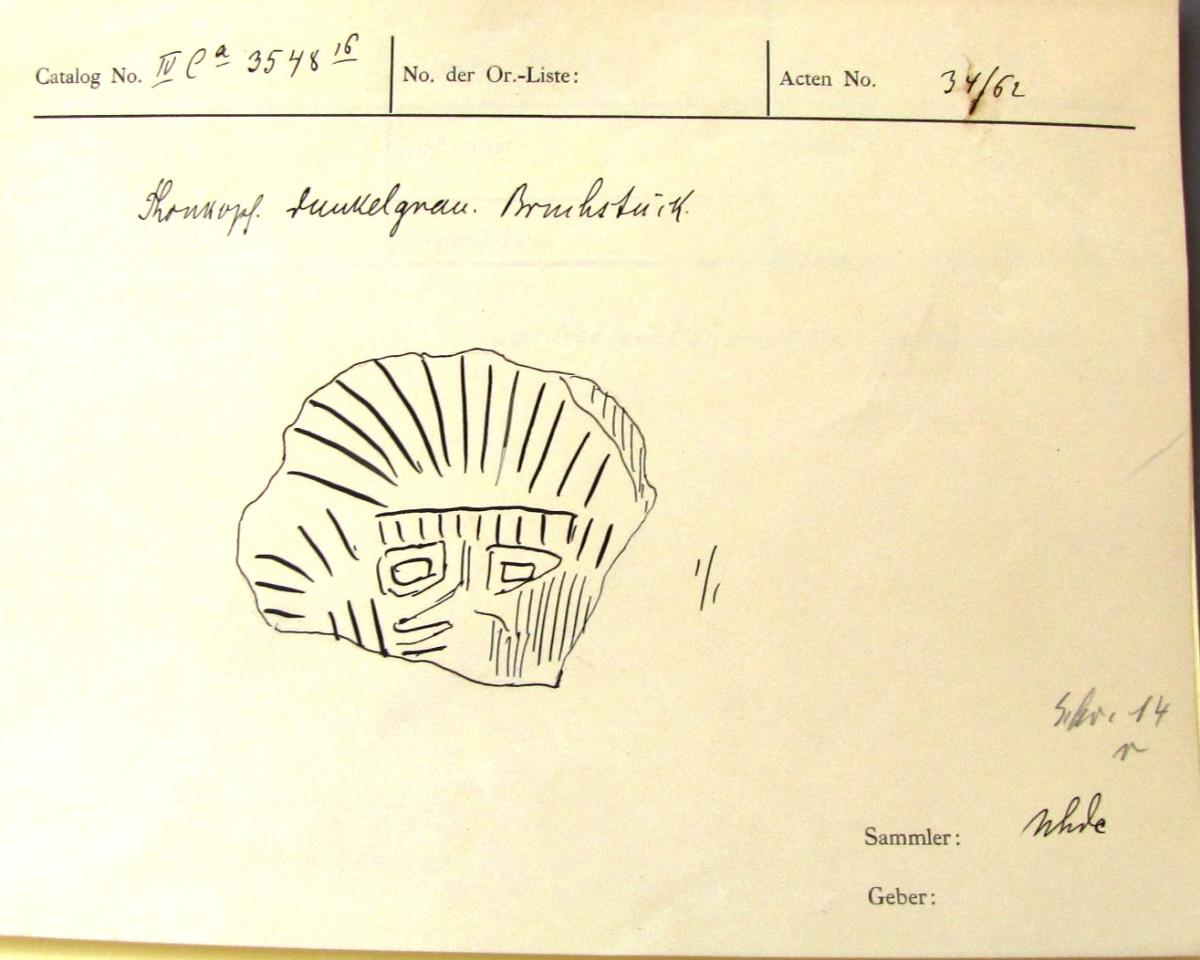 Catalog No. IV Ca 3548 16
No. der Or.-Liste:
Acten No. 34/62
Thonkopf. dunkelgrau. Bruchstück.
1/1
Schr. 14
Sammler: Uhde
Geber: